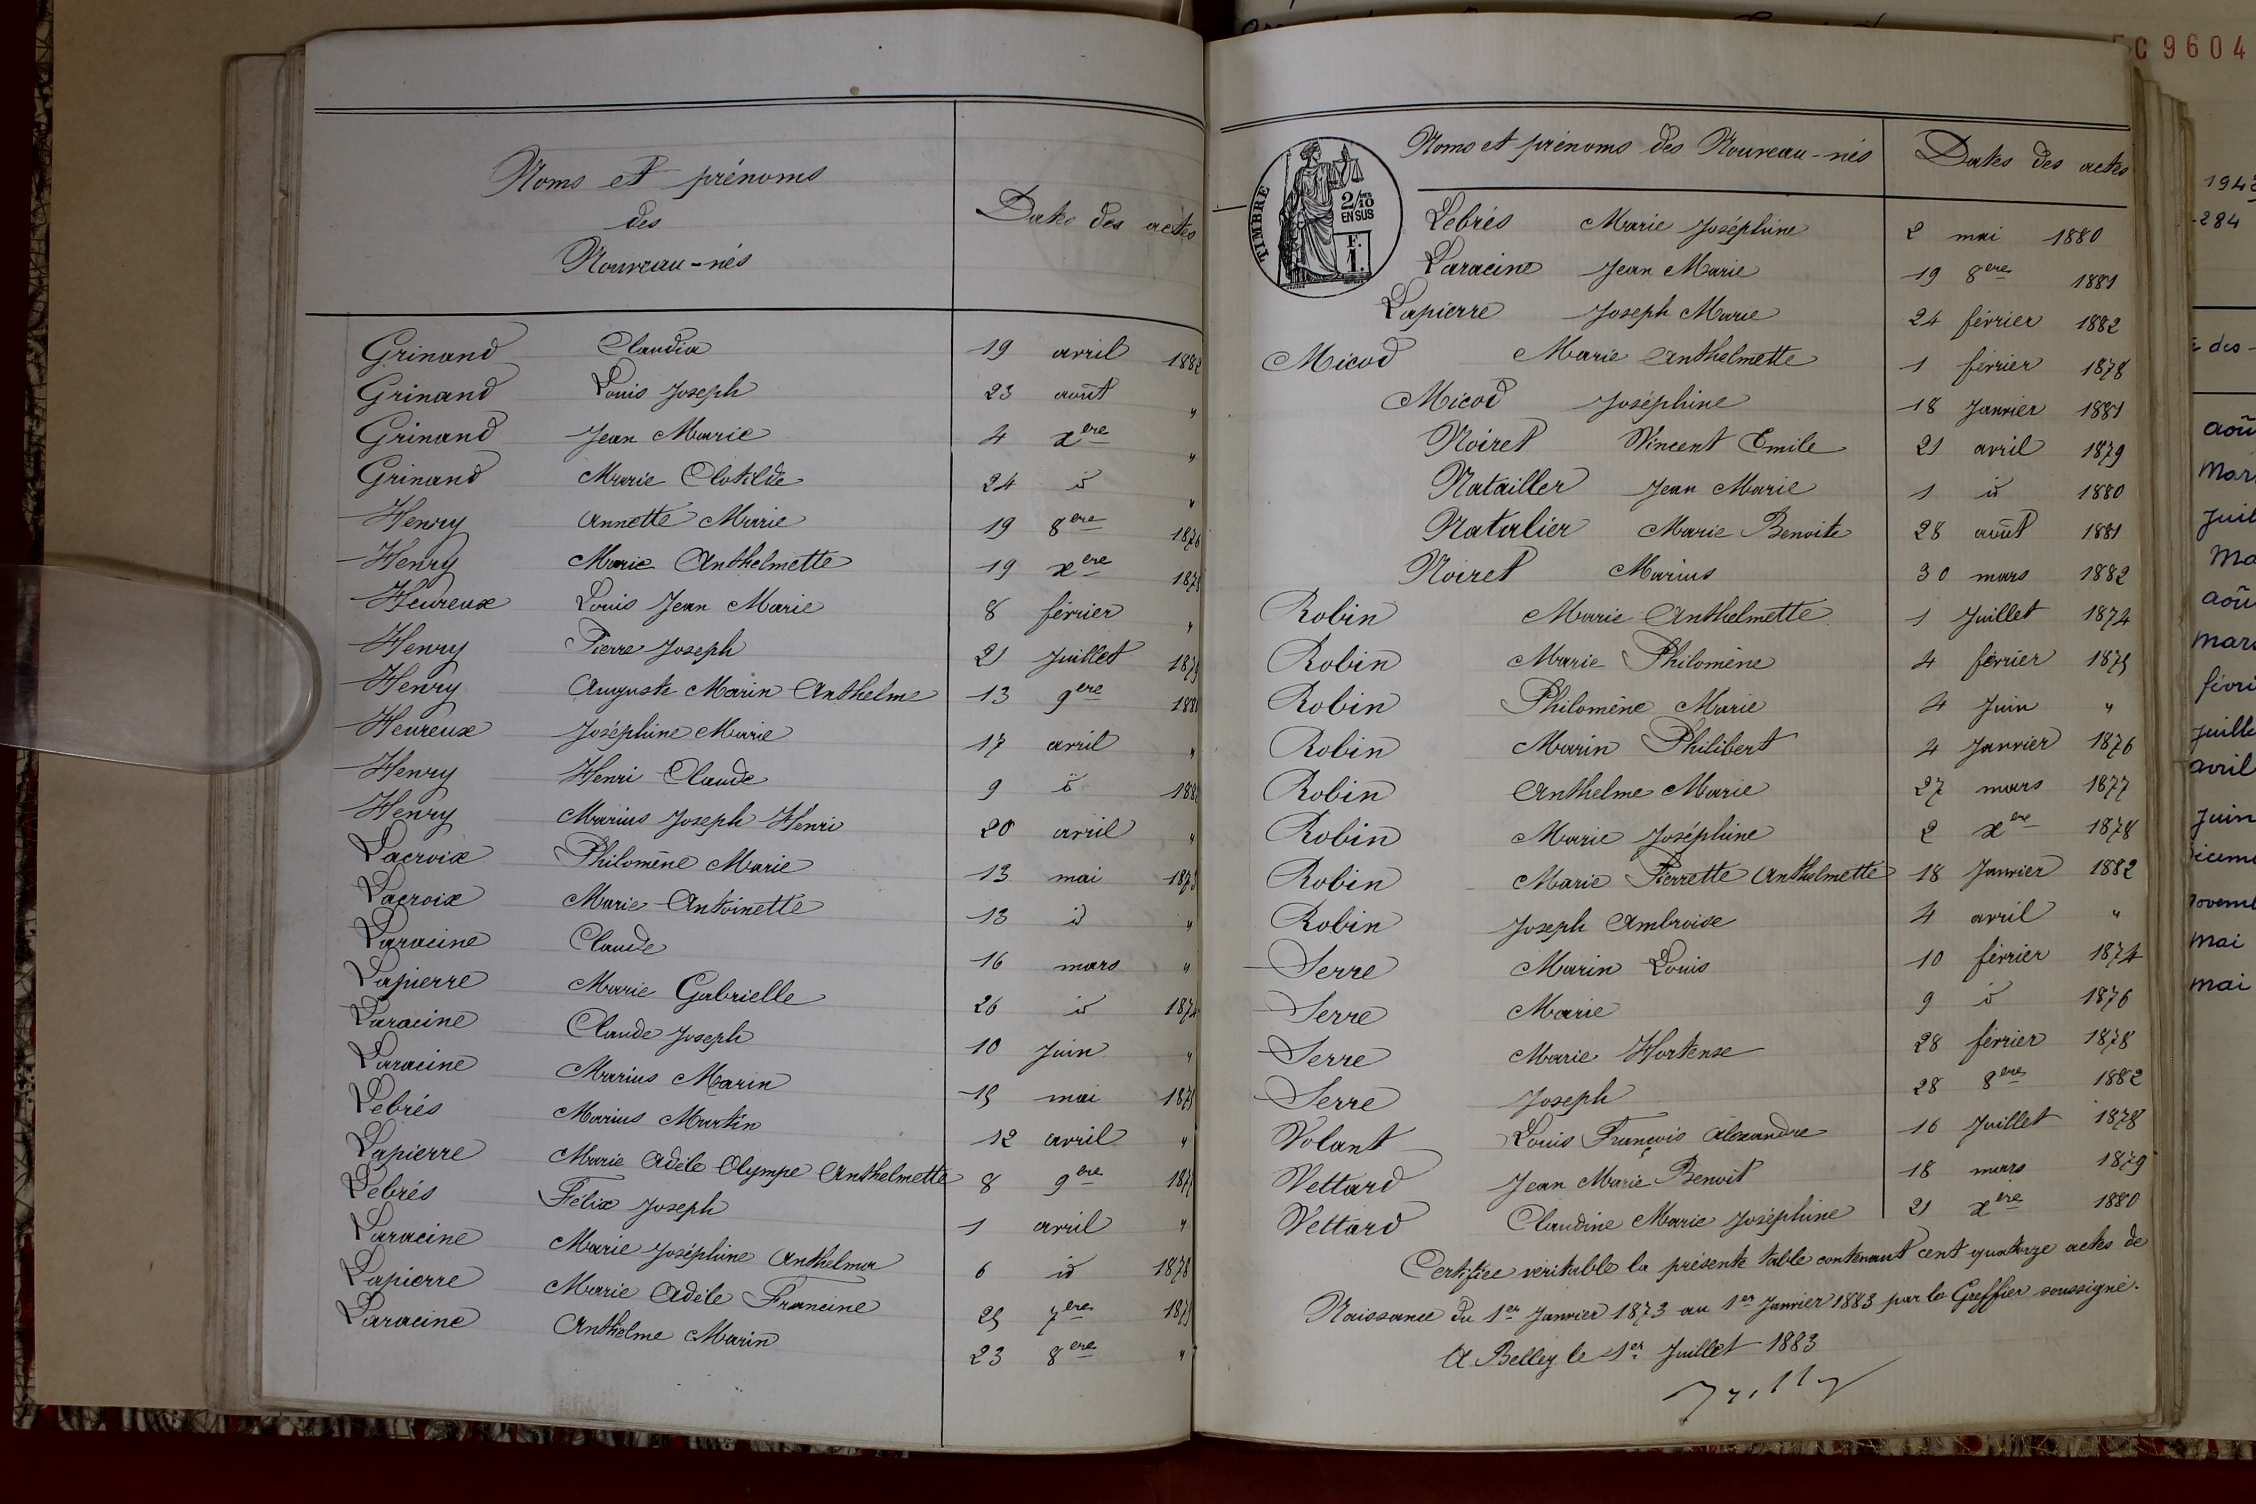 Noms et prénoms
des
Nouveau-nés
Dates des actes
Grinand Claudia 19 avril 1882
Grinand Louis Joseph 23 août "
Grinand Jean Marie 4 xere "
Grinand Marie Clotilde 24 id "
Henry Annette Marie 19 8ere 1876
Henry Marie Anthelmette 19 xere
Heureux Louis Jean Marie 8 février "
Henry Pierre Joseph 21 Juillet 1879
Henry Auguste Marin Anthelme 13 9ere
Heureux Joséphine Marie 17 avril "
Henry Henri Claude 9 id
Henry Marius Joseph Henri 20 avril "
Lacroix Philomène Marie 13 mai 1873
Lacroix Marie Antoinette 13 id "
Laracine Claude 16 mars "
Lapierre Marie Gabrielle 26 id 1874
Laracine Claude Joseph 10 Juin "
Laracine Marius Marin 15 mai 1875
Lebrés Marius Martin 12 avril "
Lapierre Marie Adèle Olympe Anthelmette 8 9ere 1877
Lebrés Félix Joseph 1 avril "
Laracine Marie Joséphine Anthelma 6 id 1878
Lapierre Marie Adèle Francine 25 7ere 1879
Laracine Anthelme Marin 23 8ere "
Noms et prénoms des Nouveau-nés Dates des actes
TIMBRE
2/10
EN SUS
F.
1.
Lebrés Marie Joséphine 2 mai 1880
Laracine Jean Marie 19 8ere 1881
Lapierre Joseph Marie 24 février 1882
Micod Marie Anthelmette 1 février 1878
Micod Joséphine 18 Janvier 1881
Noiret Vincent Emile 21 avril 1879
Natailler Jean Marie 1 id 1880
Natalier Marie Benoite 28 août 1881
Noiret Marius 30 mars 1882
Robin Marie Anthelmette 1 Juillet 1874
Robin Marie Philomène 4 février 1875
Robin Philomène Marie 4 Juin "
Robin Marin Philibert 4 Janvier 1876
Robin Anthelme Marie 27 mars 1877
Robin Marie Joséphine 2 xere 1878
Robin Marie Pierrette Anthelmette 18 Janvier 1882
Robin Joseph Ambroise 4 avril "
Serre Marin Louis 10 février 1874
Serre Marie 9 id 1876
Serre Marie Hortense 28 février 1878
Serre Joseph 28 8ere 1882
Volant Louis François Alexandre 16 Juillet 1878
Vettard Jean Marie Benoit 18 mars 1879
Vettard Claudine Marie Joséphine 21 xere 1880
Certifiée véritable la présente table contenant cent quatorze actes de
Naissance du 1er Janvier 1873 au 1er Janvier 1883 par le Greffier soussigné.
A Belley le 1er Juillet 1883
C 9604
284
des
Juin
mai
mai